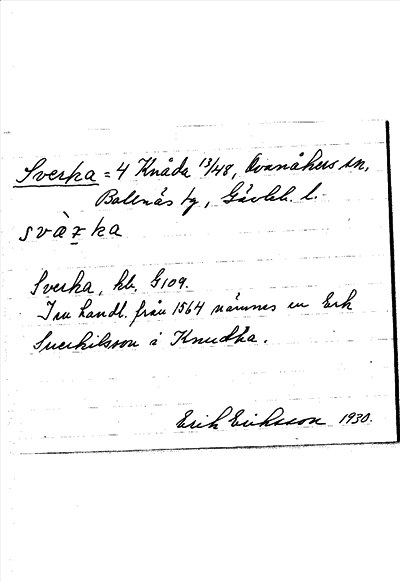 Sverka = 4 Knåda 13/48, Ovanåkers sn,
Bollnäs tg, Gävleb. l.
svàrka
Sverka, kb. G109.
I en handl. från 1564 nämnes en Erk
Suerkilsson å Knudha.
Erik Eriksson 1930.